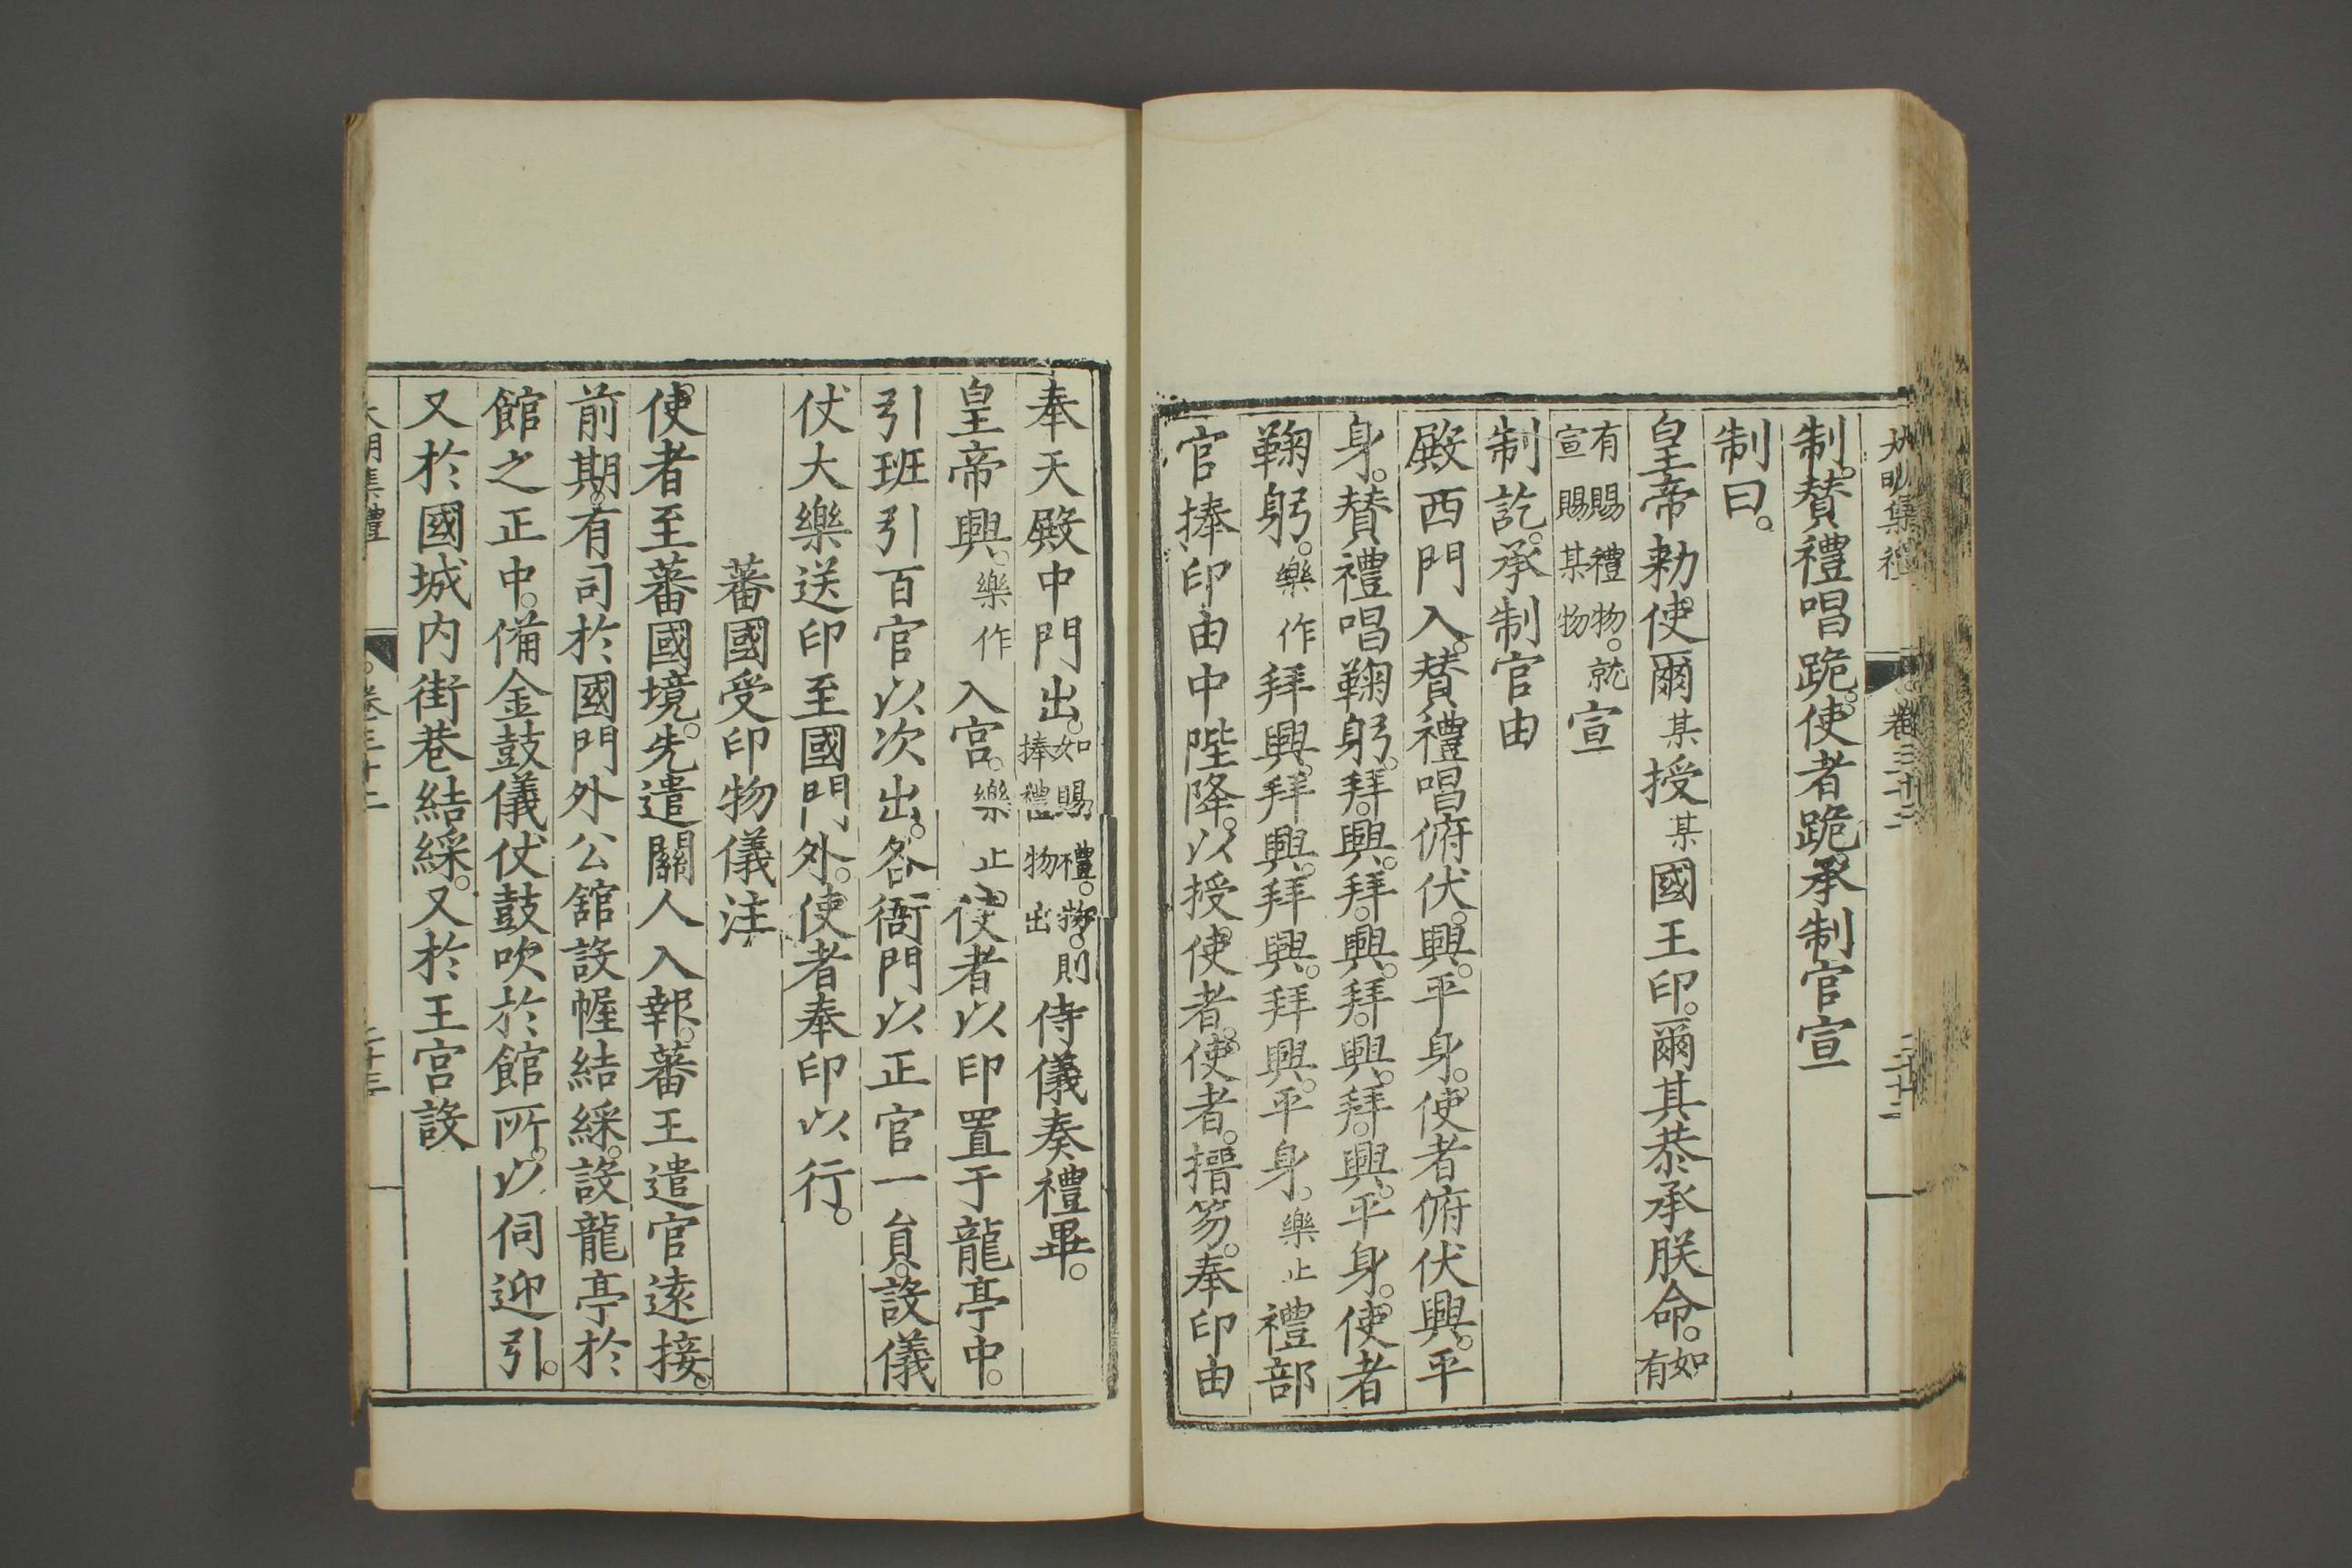 大明集禮 卷三十二 三十二
制。贊禮唱跪。使者跪。承制官宣
制曰。
皇帝勑。使爾某授某國王印。爾其恭承朕命。如有
有賜禮物。就宣賜某物宣
制訖。承制官由
殿西門入。贊禮唱俯伏。興。平身。使者俯伏興。平
身。贊禮唱鞠躬。拜。興。拜。興。拜。興。拜。興。平身。使者
鞠躬。樂作拜興。拜興。拜興。拜興。平身。樂止禮部
官捧印由中陛降。以授使者。使者。搢笏。奉印由
奉天殿中門出。如賜禮物。則捧禮物出侍儀奏禮畢。
皇帝興。樂作入宮。樂止。使者以印置于龍亭中。
引班引百官以次出。各衙門以正官一員。設儀
仗大樂送印至國門外。使者奉印以行。
蕃國受印物儀注
使者至蕃國境。先遣關人入報。蕃王遣官遠接。
前期。有司於國門外公舘設幄結綵。設龍亭於
館之正中。備金鼓儀仗鼓吹於館所。以伺迎引。
又於國城内街巷結綵。又於王宮設
大明集禮 卷三十二